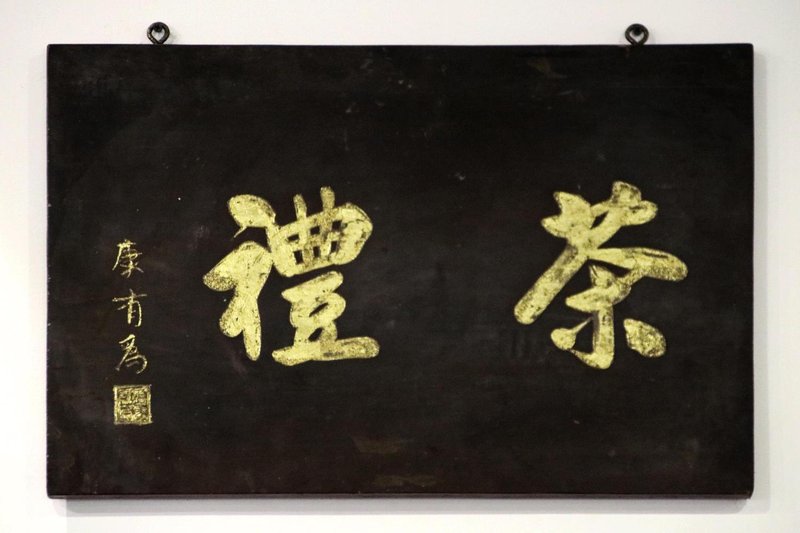 茶禮
康有為